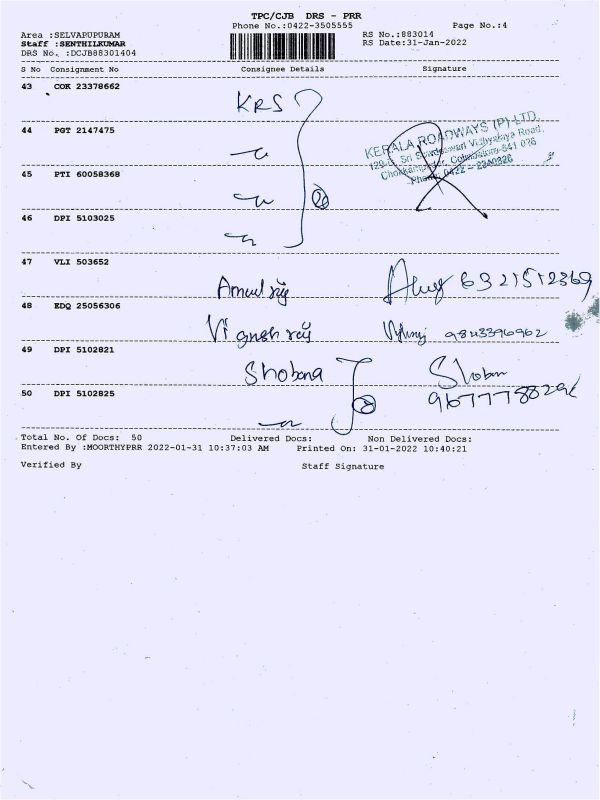 TPC/CJB DRS - PRR
Phone No.:0422-3505555 Page No.:4
Area :SELVAPUPURAM RS No.:883014
Staff :SENTHILKUMAR RS Date:31-Jan-2022
DRS No. :DCJB88301404
S No Consignment No Consignee Details Signature
43 COK 23378662
KRS
44 PGT 2147475
KERALA ROADWAYS (P) LTD.
45 PTI 60058368
46 DPI 5103025
47 VLI 503652
48 EDQ 25056306
9843396962
49 DPI 5102821
Shobana
50 DPI 5102825
Total No. Of Docs: 50 Delivered Docs: Non Delivered Docs:
Entered By :MOORTHYPRR 2022-01-31 10:37:03 AM Printed On: 31-01-2022 10:40:21
Verified By Staff Signature